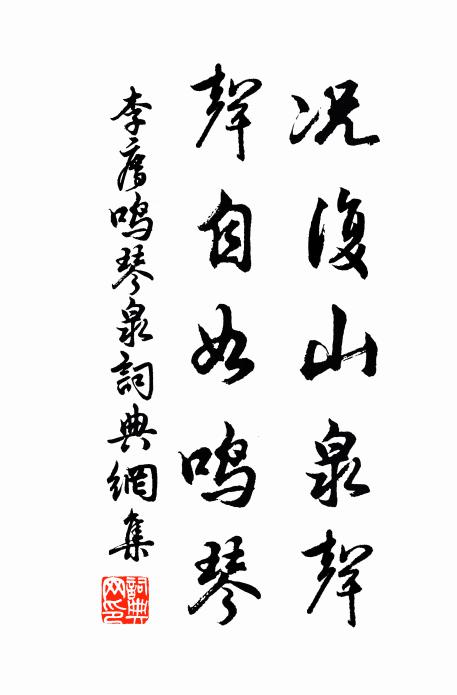 况復山泉聲
聲自如鳴琴
李廌鳴琴泉詞典網集
詞典網印